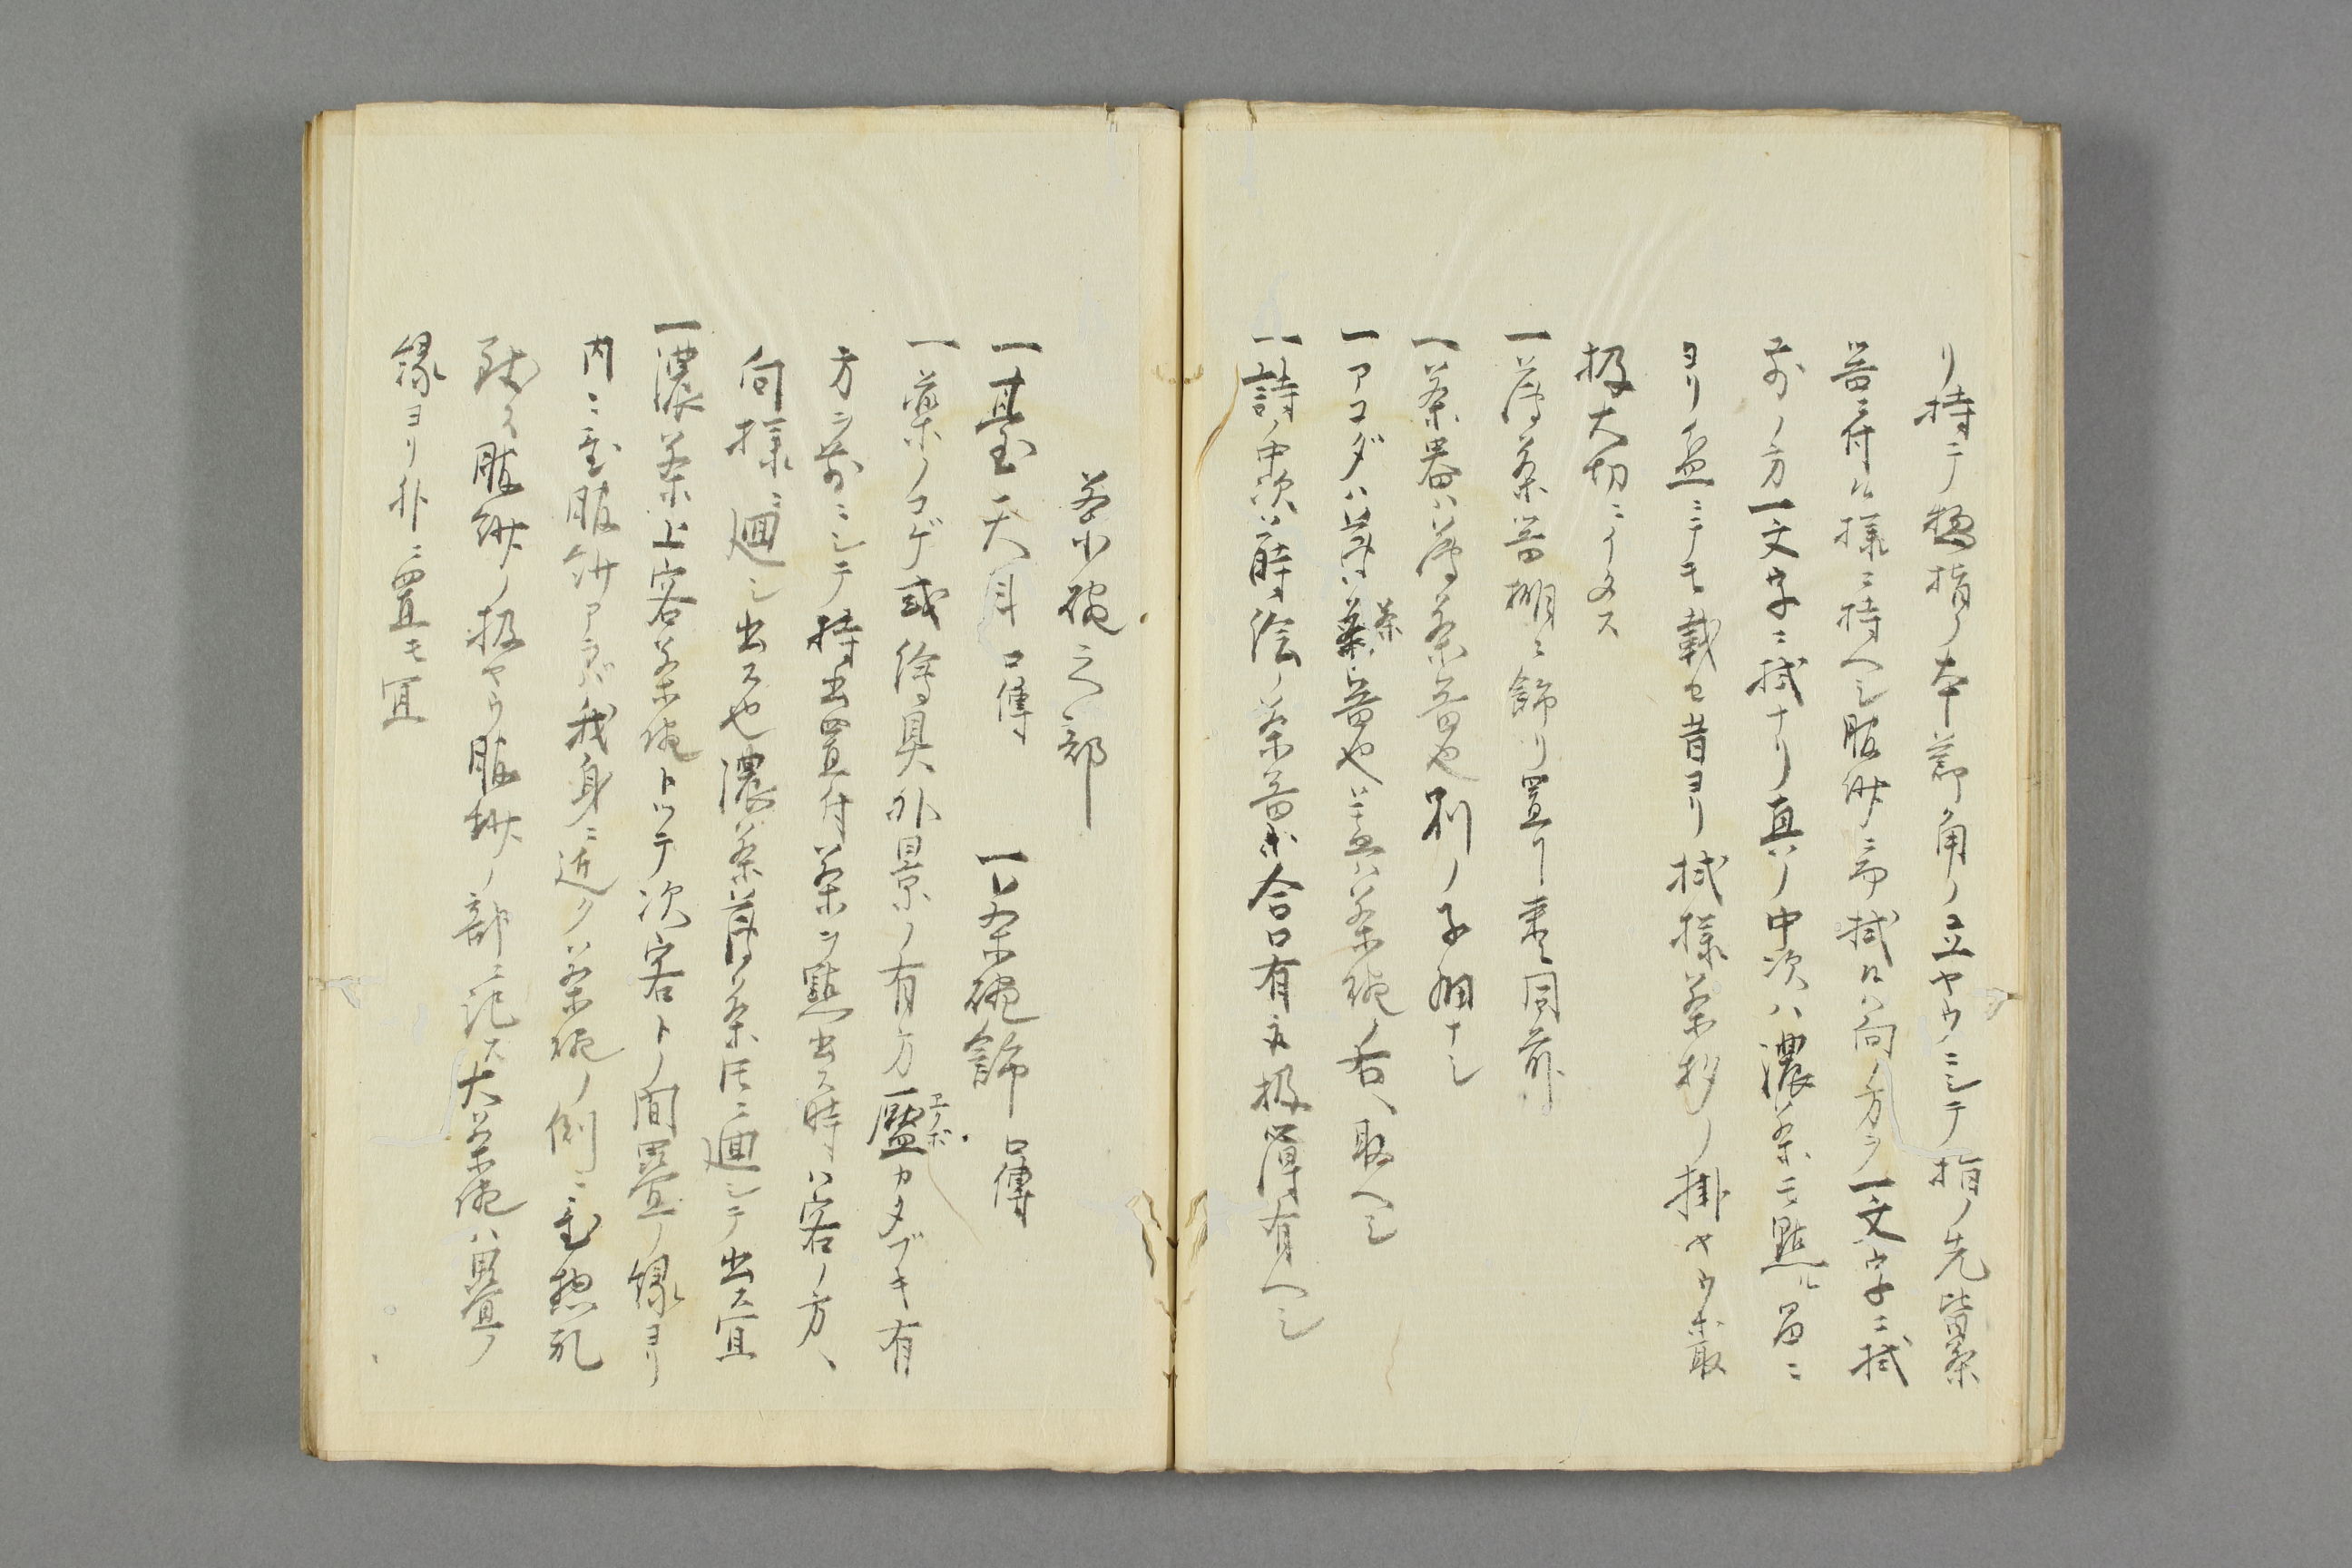 リ持テ揚指ノ本節角ノ立ヤウニシテ指ノ先皆茶
器ニ付ル様ニ持ヘシ服紗ニ而拭ニハ向ノ方ヲ一文字ニ拭
前ノ方一文字ニ拭ナリ真ノ中次ハ濃茶ニ點ル習ニ
ヨリ盆ニテモ載セ昔ヨリ拭様茶杓ノ掛ヤウ等取
扱大切ニイタス
一薄茶器棚ニ飾リ置事棗同前
一茶器ハ薄茶器也別ノ子細ナシ
一アコダハ薄茶器也蓋ハ茶碗ノ右ヘ取ヘシ
一詩ノ中次ハ蒔絵ノ茶器等合口有ニ扱習有ヘシ
茶碗之部
一臺天目口傳 一茶碗飾口傳
一薬ノコゲ或繪具外景ノ有方靨エクボカタブキ有
方ヲ前ニシテ持出置付茶ヲ點出ス時ハ客ノ方ヘ
向様ニ廻シ出ス也濃茶薄茶トモニ廻シテ出ス宜
一濃茶上客茶碗トツテ次客トノ間畳ノ縁ヨリ
内ニ置服紗アラバ我身ニ近ク茶碗ノ側ニ置惣礼
致ス服紗ノ扱ヤウ服紗ノ部ニ記ス大茶碗ハ畳ノ
縁ヨリ外ニ置モ宜